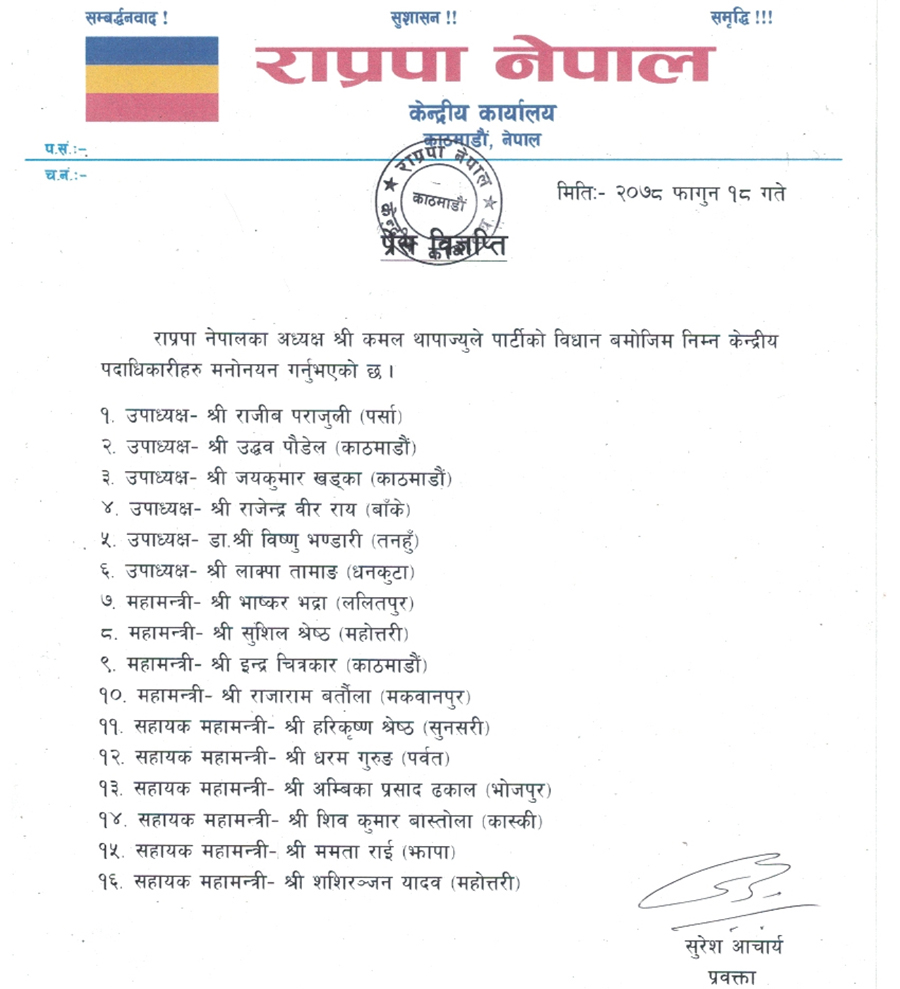 सम्बर्द्धनवाद ! सुशासन !! समृद्धि !!!
राप्रपा नेपाल
केन्द्रीय कार्यालय
काठमाडौं, नेपाल
प.सं.:-
च.नं.:-
राप्रपा नेपाल
काठमाडौं
मितिः- २०७८ फागुन १८ गते
प्रेस विज्ञप्ति
राप्रपा नेपालका अध्यक्ष श्री कमल थापाज्युले पार्टीको विधान बमोजिम निम्न केन्द्रीय
पदाधिकारीहरु मनोनयन गर्नुभएको छ ।
१. उपाध्यक्ष- श्री राजीब पराजुली (पर्सा)
२. उपाध्यक्ष- श्री उद्धव पौडेल (काठमाडौं)
३. उपाध्यक्ष- श्री जयकुमार खड्का (काठमाडौं)
४. उपाध्यक्ष- श्री राजेन्द्र वीर राय (बाँके)
५. उपाध्यक्ष- डा.श्री विष्णु भण्डारी (तनहुँ)
६. उपाध्यक्ष- श्री लाक्पा तामाङ (धनकुटा)
७. महामन्त्री- श्री भाष्कर भद्रा (ललितपुर)
८. महामन्त्री- श्री सुशिल श्रेष्ठ (महोत्तरी)
९. महामन्त्री- श्री इन्द्र चित्रकार (काठमाडौं)
१०. महामन्त्री- श्री राजाराम बर्तौला (मकवानपुर)
११. सहायक महामन्त्री- श्री हरिकृष्ण श्रेष्ठ (सुनसरी)
१२. सहायक महामन्त्री- श्री धरम गुरुङ (पर्वत)
१३. सहायक महामन्त्री- श्री अम्बिका प्रसाद ढकाल (भोजपुर)
१४. सहायक महामन्त्री- श्री शिव कुमार बास्तोला (कास्की)
१५. सहायक महामन्त्री- श्री ममता राई (झापा)
१६. सहायक महामन्त्री- श्री शशिरञ्जन यादव (महोत्तरी)
सुरेश आचार्य
प्रवक्ता